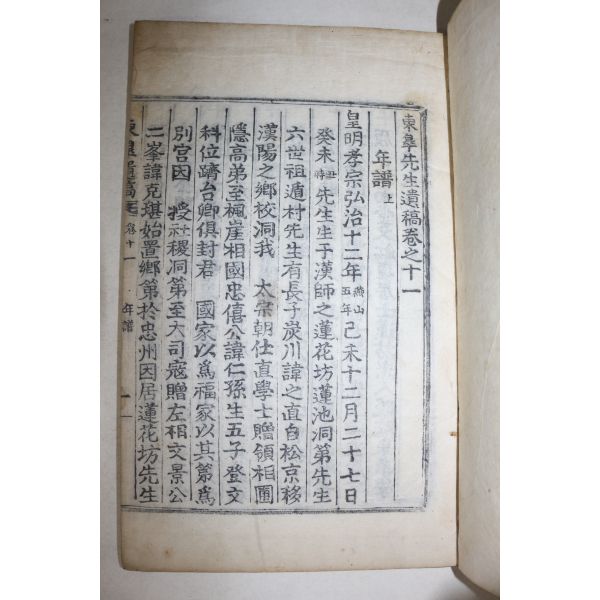 東皐先生遺稿卷之十一
年譜上
皇明孝宗弘治十二年燕山五年己未十二月二十七日
癸未丑時先生生于漢師之蓮花坊蓮池洞第先生
六世祖遁村先生有長子炭川諱之直自松京移
漢陽之鄕校洞我 太宗朝仕直學士贈領相圃
隱高弟至楓崖相國忠僖公諱仁孫生五子登文
科位躋台卿俱封君 國家以爲福家以其第爲
別宮因 授社稷洞第至大司寇贈左相文景公
二峯諱克堪始置鄕第於忠州因居蓮花坊先生
東皐遺稿 卷十一 年譜 一